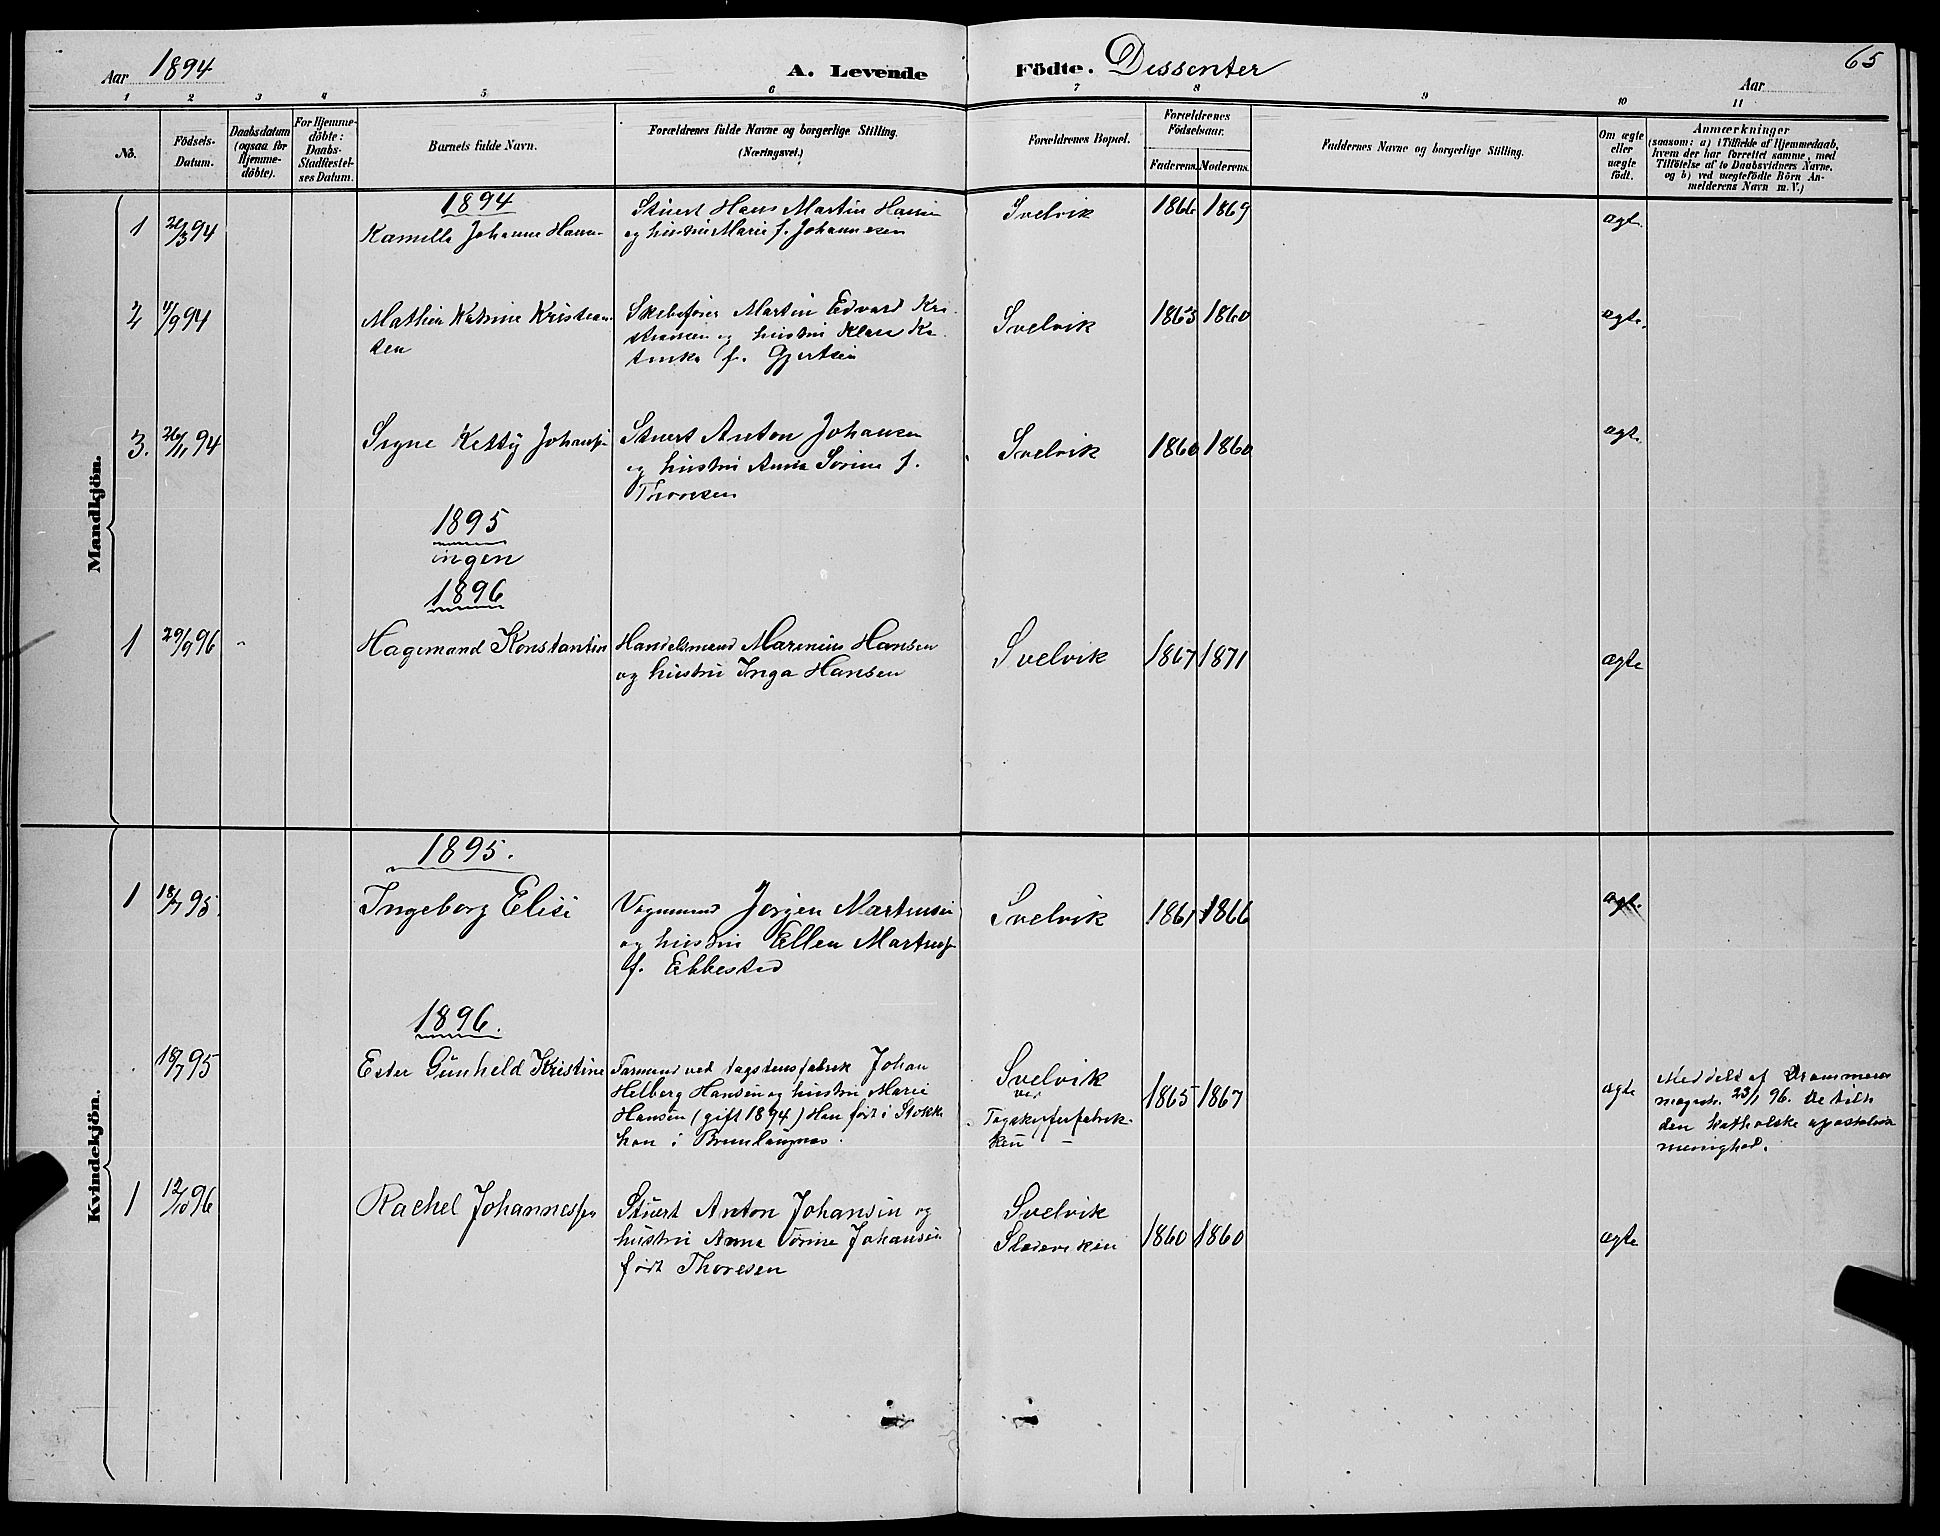 Aar 1894
A. Levende Födte. Dissenter
Aar
65
1 2 3 4 5 6 7 8 9 10 11
No.
Födsels-
Datum.
Daabsdatum
(ogsaa for
Hjemme-
döbte).
For Hjemme-
döbte:
Daabs-
Stadfæstel-
ses Datum.
Barnets fulde Navn.
Forældrenes fulde Navne og borgerlige Stilling.
(Næringsvei.)
Forældrenes Bopæl.
Forældrenes
Födselsaar.
Faderens. Moderens.
Faddernes Navne og borgerlige Stilling.
Om ægte
eller
uægte
födt.
Anmærkninger
(saasom: a) i Tilfælde af Hjemmedaab,
hvem der har forrettet samme, med
Tilföielse af to Daabsvidners Navne,
og b) ved uægtefödte Börn An-
melderens Navn m. V.)
Mandkjön.
1894
1
Kamilla Johanne Hansen
Stuert Hans Martin Hansen
og hustru Marie f. Johannesen
Svelvik
1866 1869
ægte
2
11/9 94
Mathea Katrine Kristian
sen
Skibsfører Martin Edvard Kri-
stiansen og hustru Klara Ka-
tinka f. Gjertsen
Svelvik
1863 1860
ægte.
3.
26/11 94
Signe Ketty Johansen
Stuert Anton Johansen
og hustru Anna Sorine f.
Thoresen
Svelvik
1860 1860
ægte
1895
ingen
1896
1
29/9 96
Hagemand Konstantin
Handelsmand Marenius Hansen
og hustru Inga Hansen
Svelvik
1867 1871
ægte
Kvindekjön.
1895.
1
18/7 95.
Ingeborg Elise
Vognmand Jørgen Martinsen
og hustru Ellen Martinsen
f. Ebbestad
Svelvik
1861 1866
ægte
1896.
18/7 95
Ester Gunheld Kristine
Formand ved tagstensfabrik Johan
Helberg Hansen og hustru Marie
Hansen (gift 1894) Han født i Stokk
han i Brunlaugnes.
Svelvik
ved
Tagskiferfabrik-
ken
1865 1867
ægte
Meddelt af Drammens
magistr. 23/1 96. De tilh
den katholske apostolisk
menighed.
1
12/10 96
Rachel Johannessen
Stuert Anton Johansen og
hustru Anna Sorine Johansen
født Thoresen
Svelvik
1860 1860
ægte